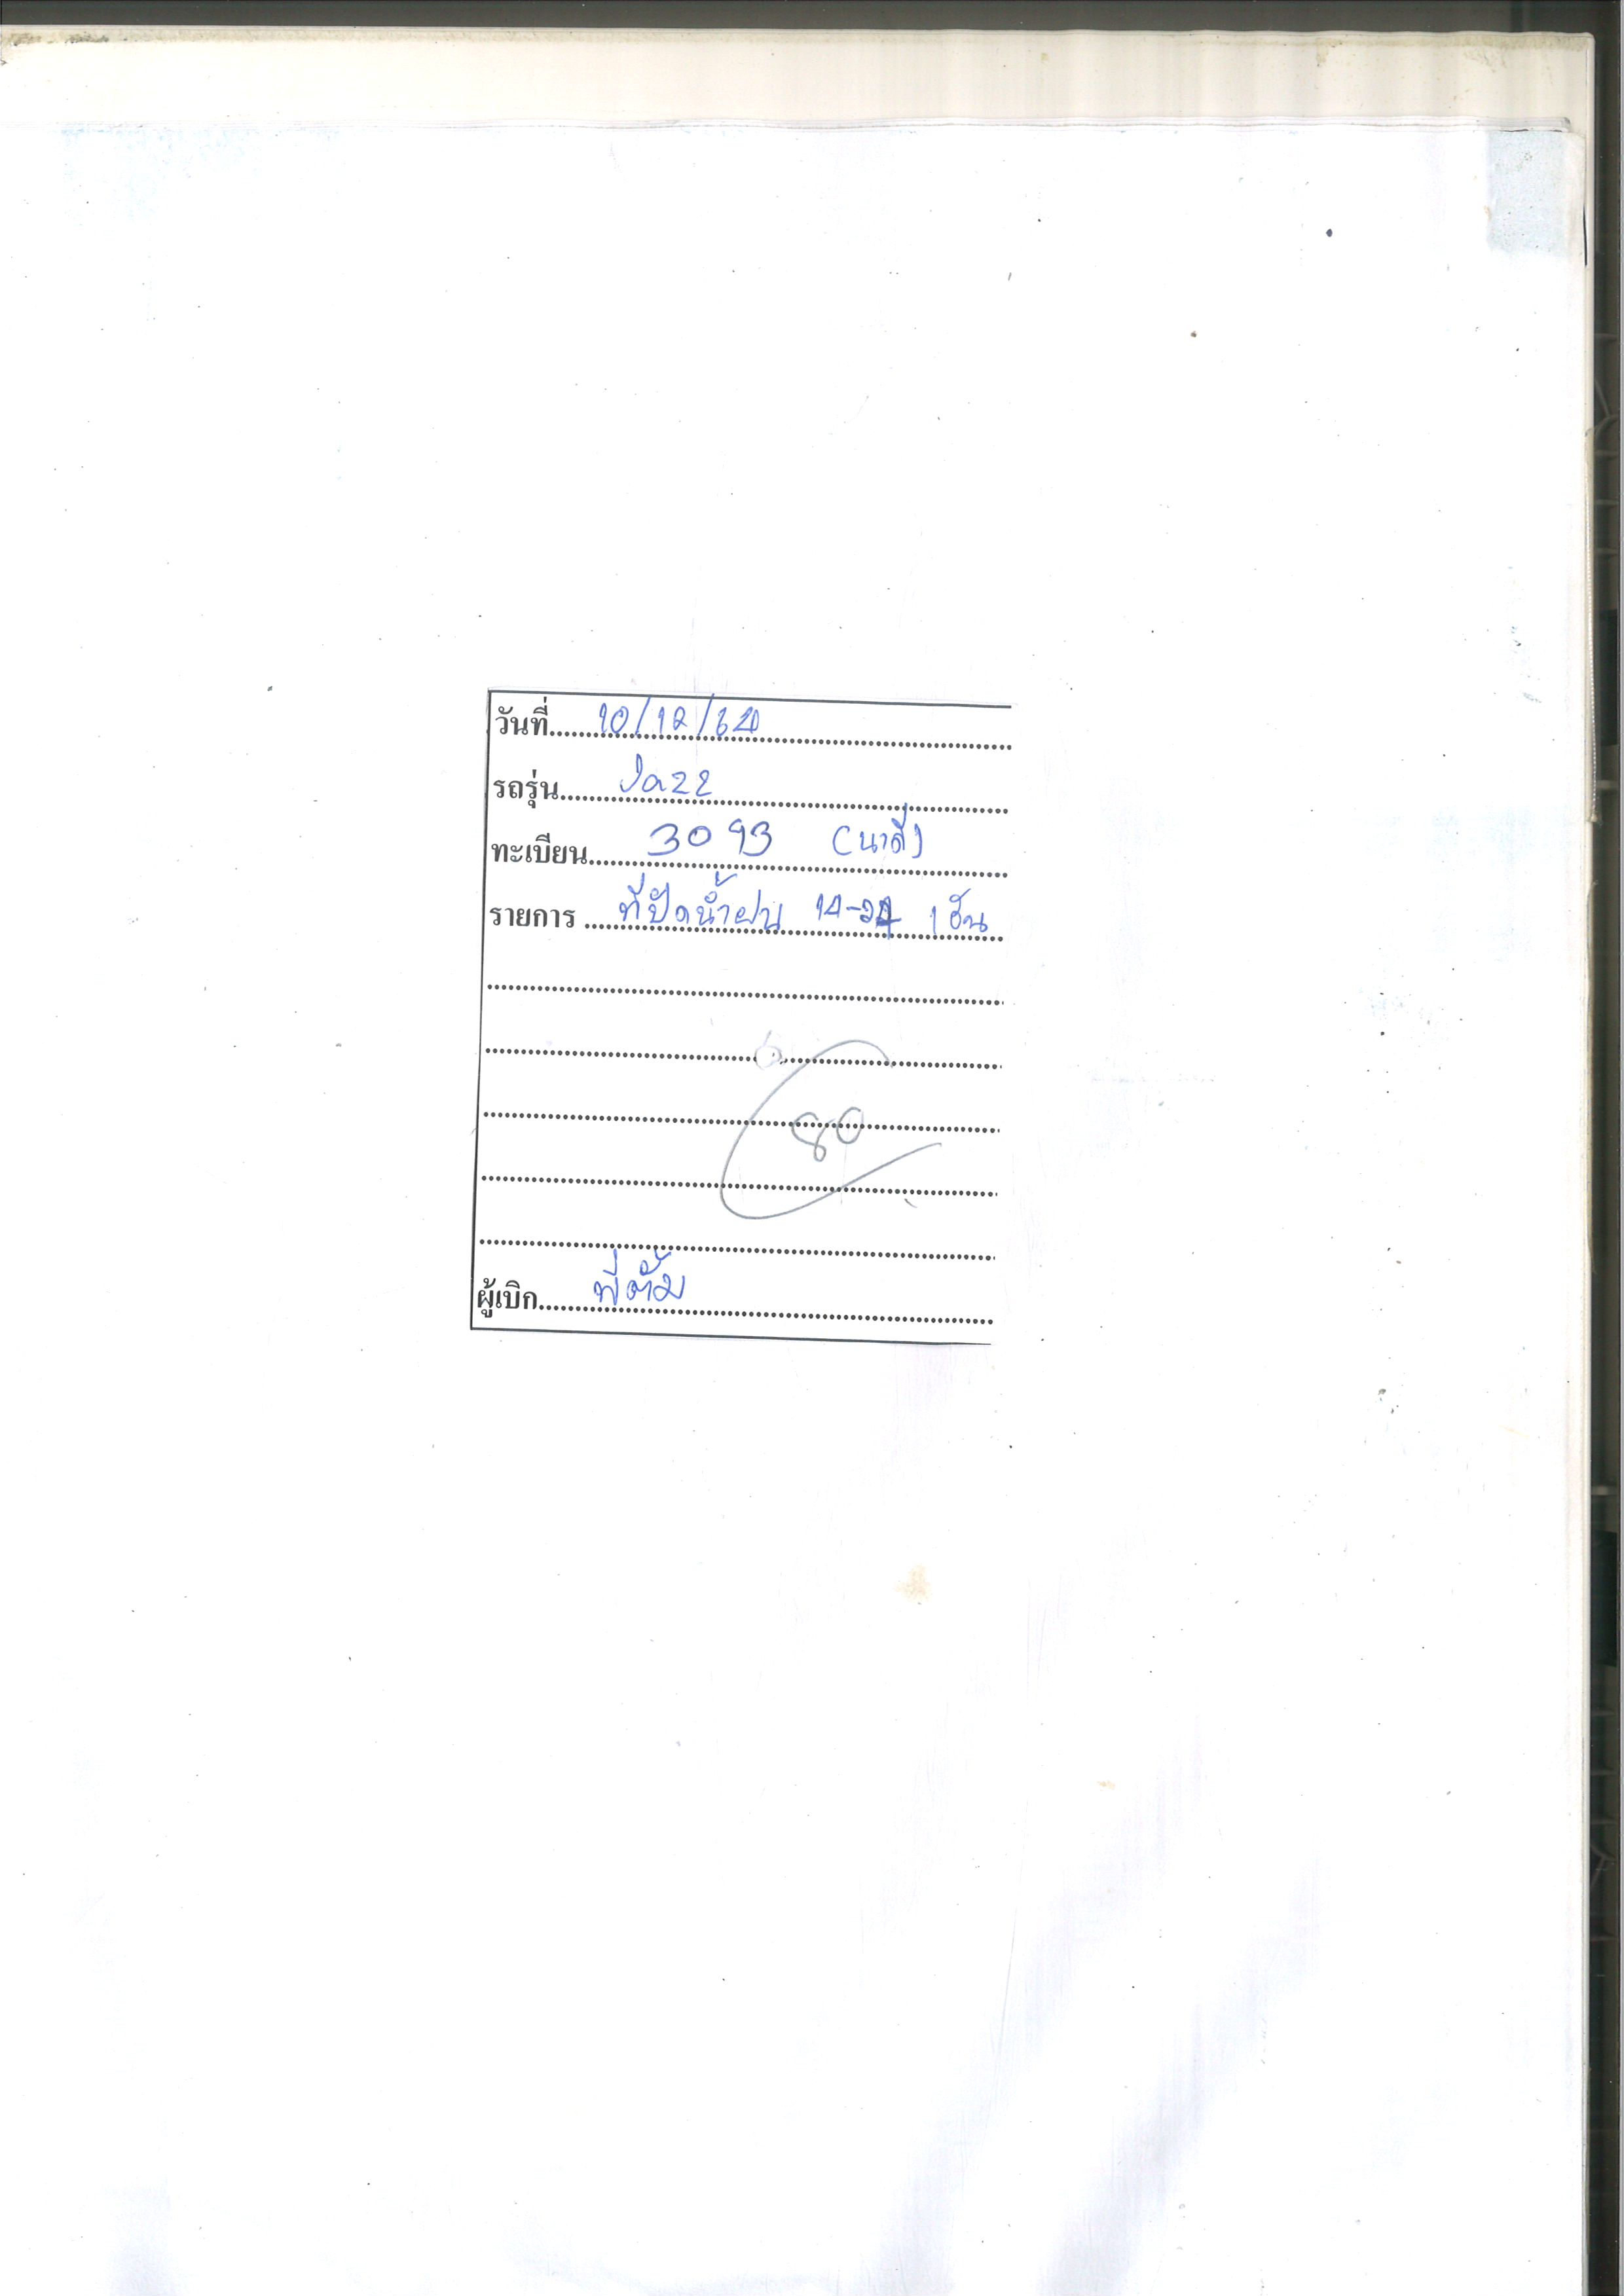 วันที่ 10/12/64
รถรุ่น Jazz
ทะเบียน 3093 (นาดี)
รายการ ที่ปัดน้ำฝน 14-24 1 อัน
80
ผู้เบิก พี่ตั้ม